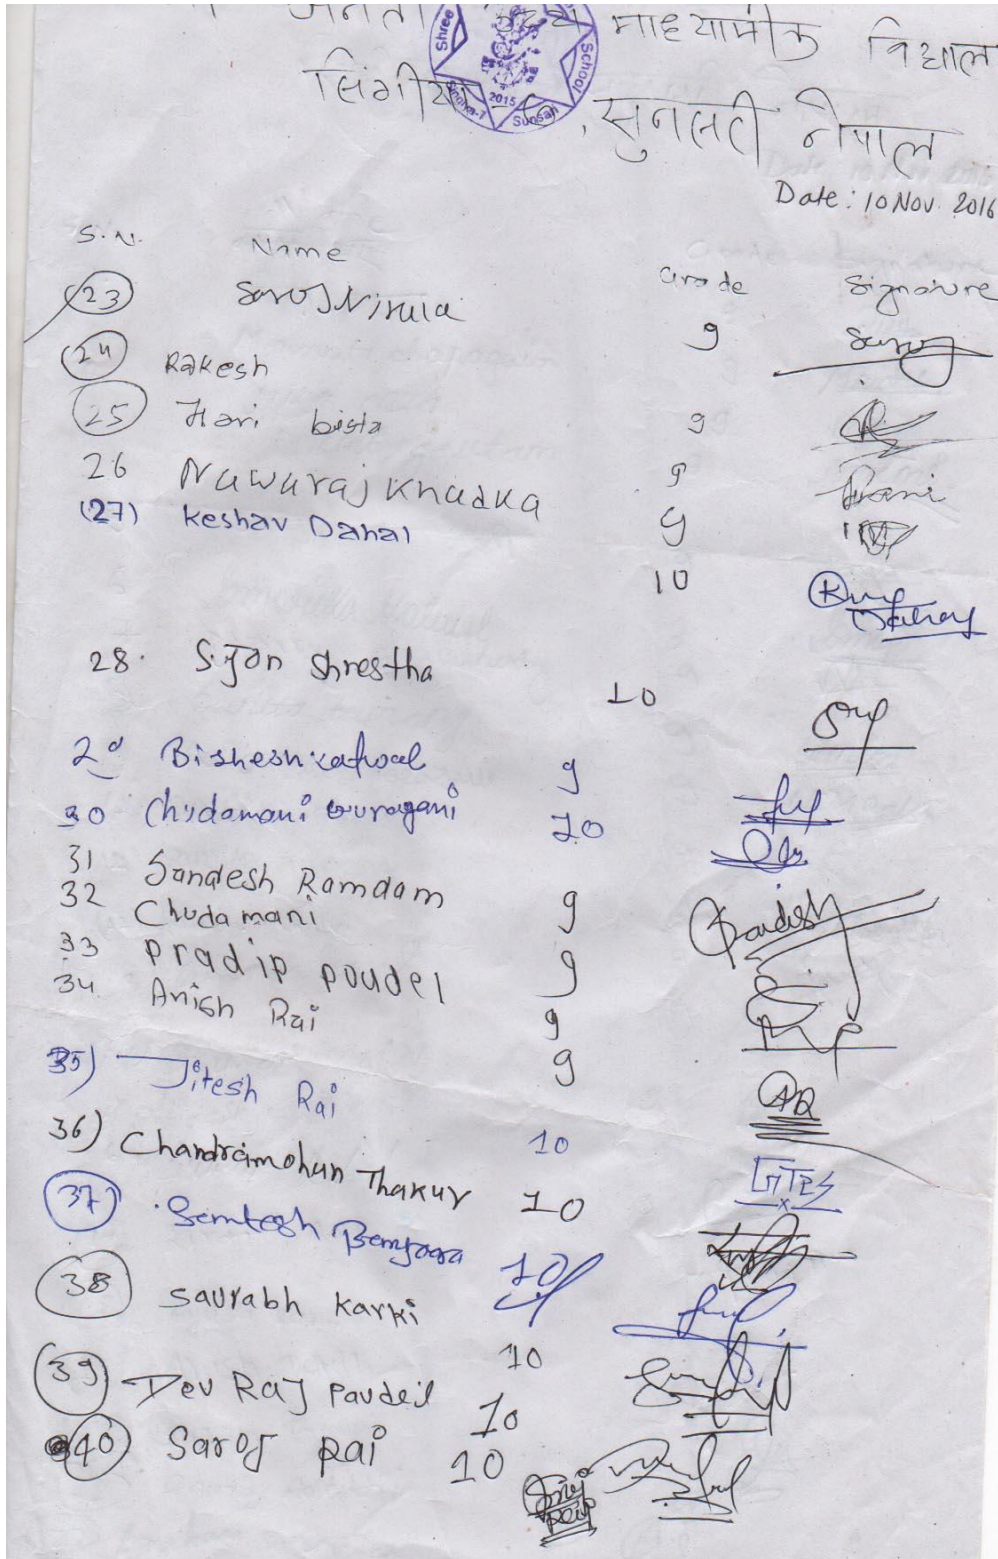 जनता माध्यामीक विद्याल
Shree School
2015
Singiha-7 Sunsari
सिंगीया , सुनसरी नेपाल
Date: 10 Nov. 2016
S.N. Name Grade Signature
23 Saroj Nirula 9 Saroj
24 Rakesh 9
25 Hari bista 9
26 Nawaraj Khadka 9
(27) Keshav Dahal 10
28. Sijan Shrestha 10
29 Bishesh Katwal 9
30 Chudamani Guragani 10
31 Sandesh Ramdam 9 Sandesh
32 Chudamani 9
33 Pradip poudel 9
34 Anish Rai 9 AR
35) Jitesh Rai 10 GTES
36) Chandramohun Thakur 10
37 10
38 Saurabh Karki 10
39 Dev Raj Paudel 10
40 Saroj Rai 10